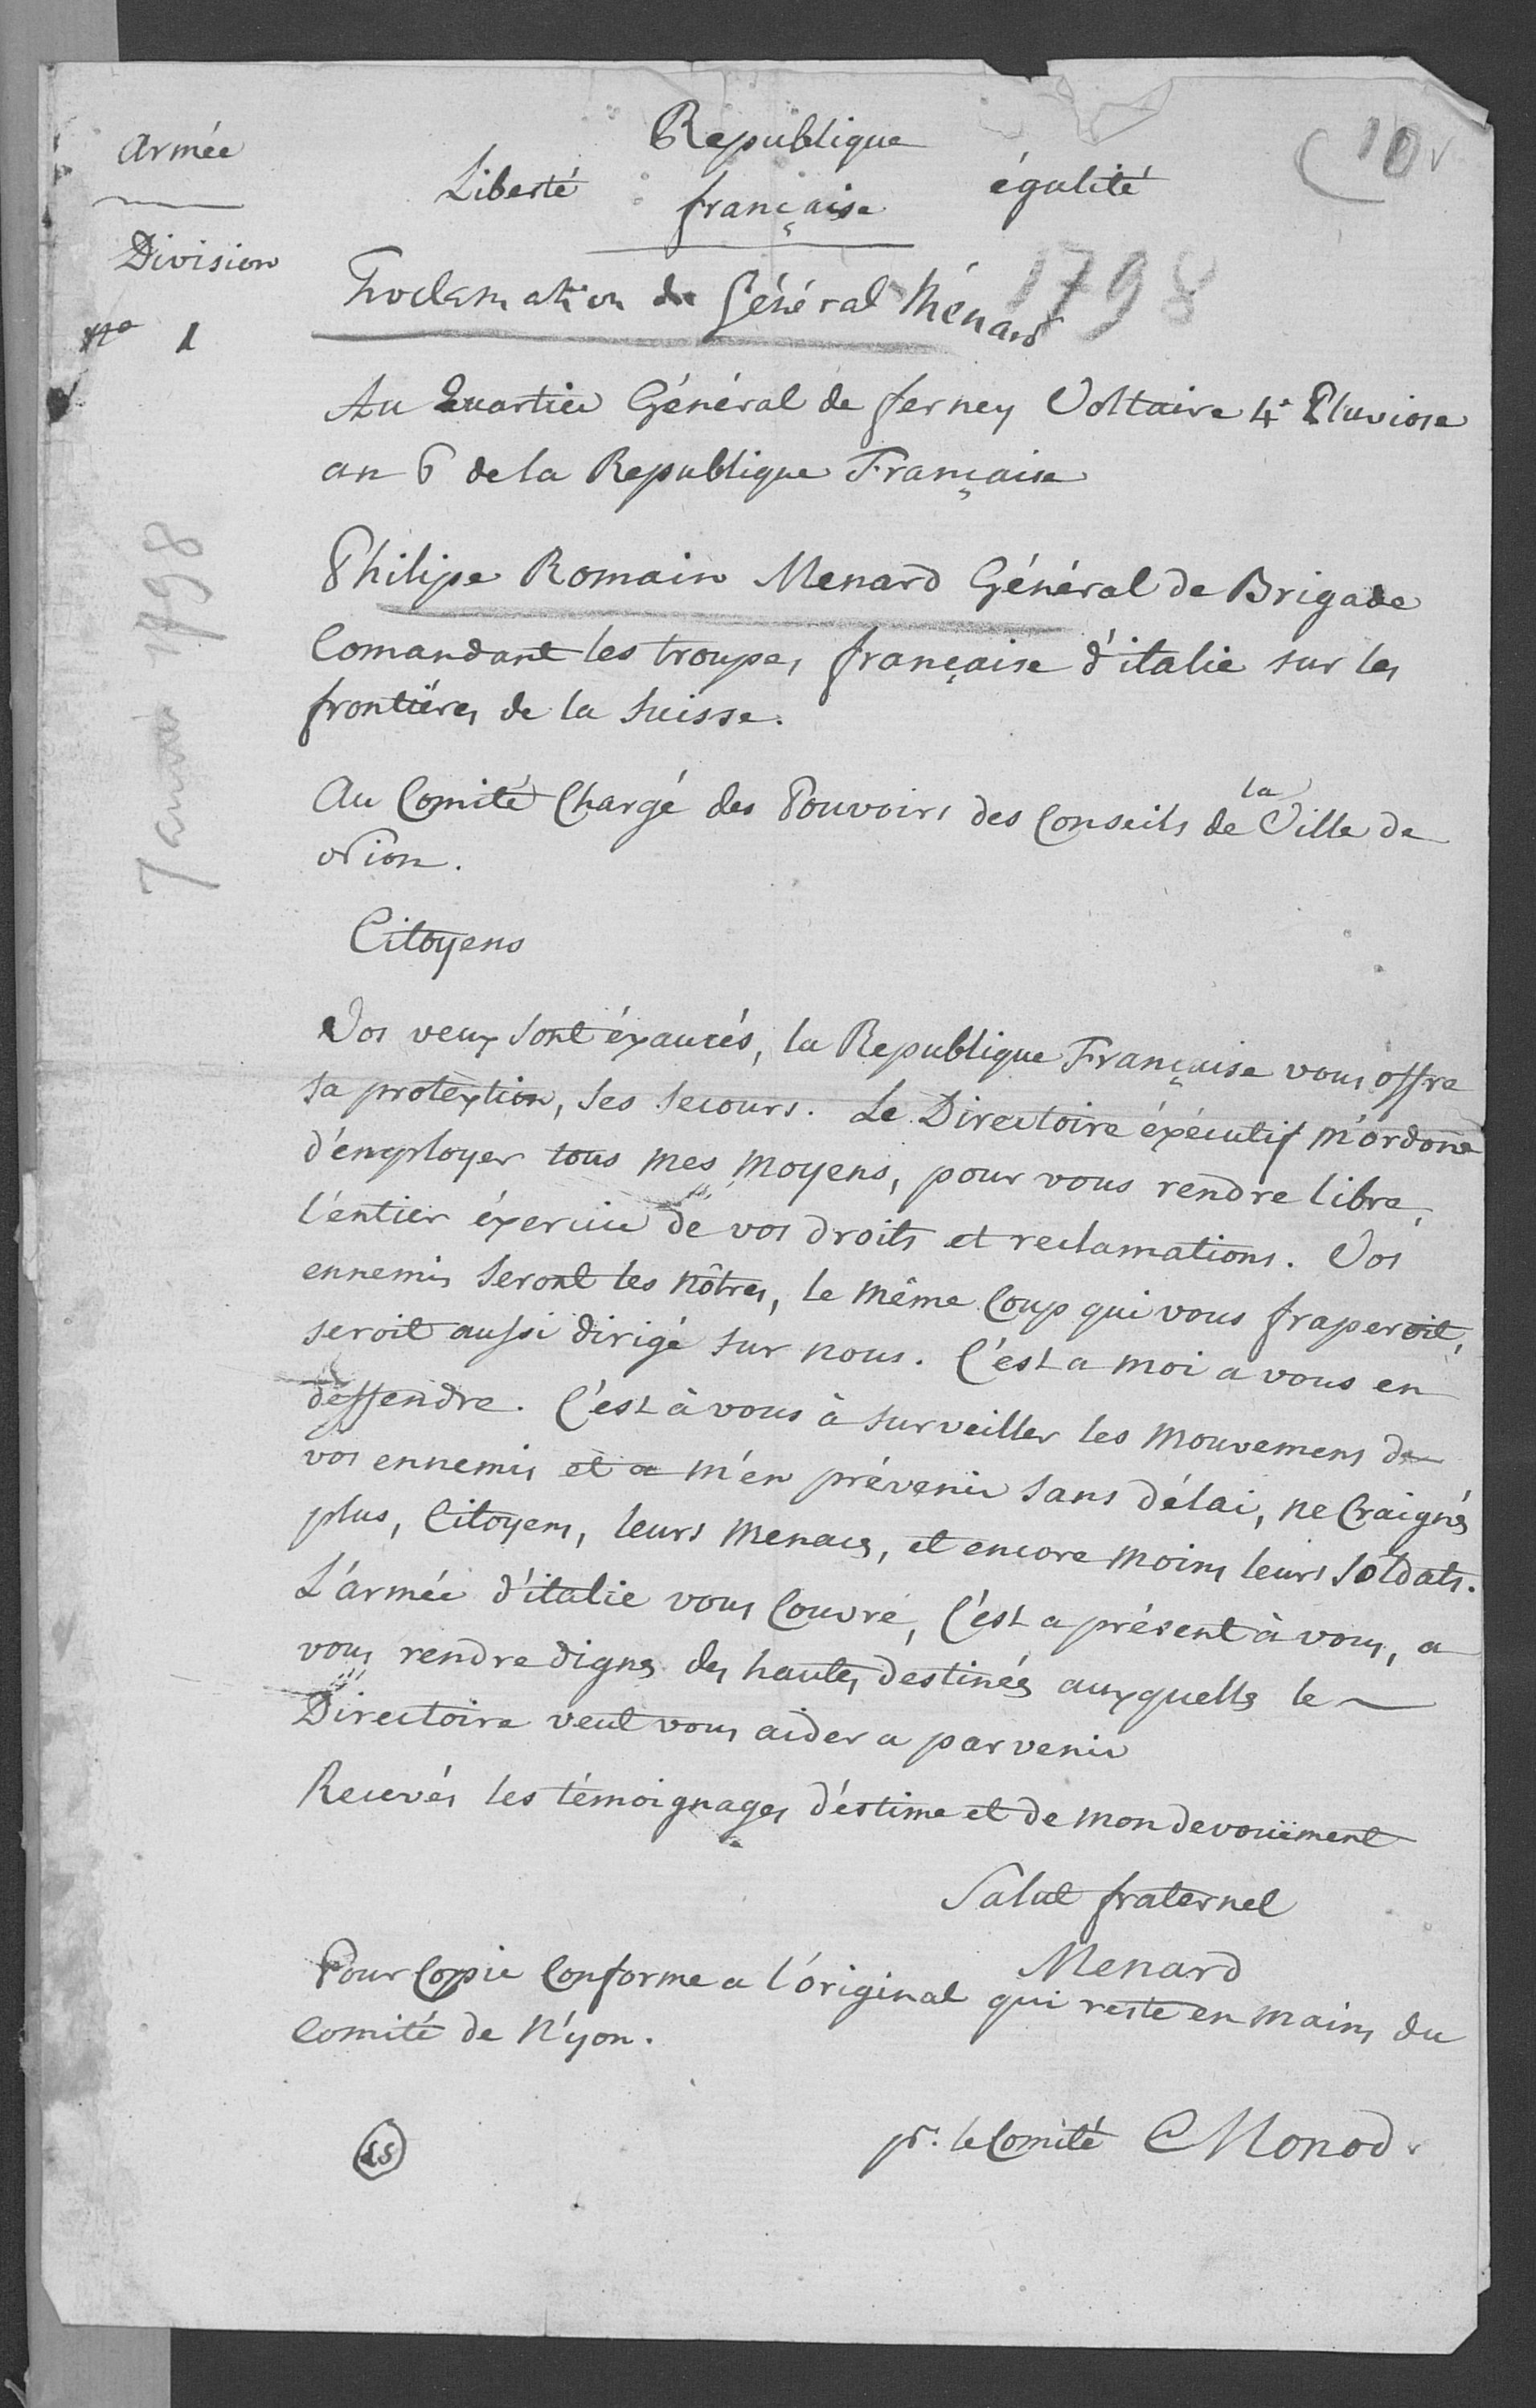 Armée
Division
No 1
Republique
Liberté française égalité
10
1798
Proclamation du Général Ménard
Au Quartier Général de ferney Voltaire 4e Pluviose
an 6 de la Republique Française
Philipe Romain Menard Général de Brigade
Comandant les troupes française d'italie sur les
frontiéres de la Suisse.
Au Comité Chargé des Pouvoirs des Conseils de la Ville de
Nion.
Citoyens
Vos veux sont éxaucés, la Republique Française vous offre
sa protextion, ses secours. Le Directoire éxécutif m'ordone
d'employer tous mes moyens, pour vous rendre libre,
l'entier éxercice de vos droits et reclamations. Vos
ennemis seront les nôtres, le même Coup qui vous fraperoit,
seroit aussi dirigé sur nous. C'est a moi a vous en
deffendre. C'est à vous à surveiller les mouvemens de
vos ennemis et a m'en prévenir sans délai, ne Craignés
plus, Citoyens, leurs menaces, et encore moins leurs Soldats.
L'armée d'italie vous Couvre, C'est a présent à vous, a
vous rendre dignes des hautes destinées auxquelles le
Directoire veut vous aider a parvenir
Recevés les témoignages d'éstime et de mon devouëment
Salut fraternel
Menard
Pour Copie Conforme a l'original qui reste en mains du
Comité de N'yon.
pr. le Comité Monod
LS
Janvier 1798